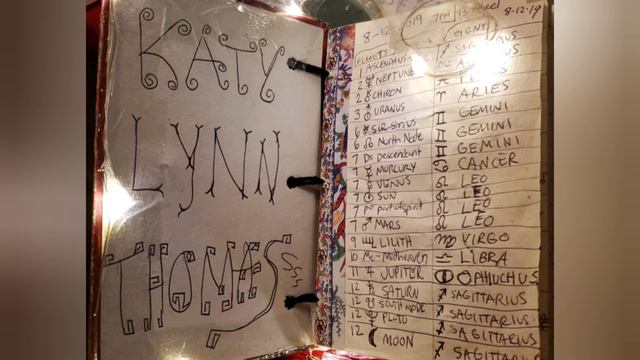 KATY
LYNN
THOMAS
8-12
8-12-19
SIGNS
1 ASCENDNUS
2 NEPTUNE
2 CHIRON ♈ ARIES
3 URANUS ♊ GEMINI
6 SIR-Sirius ♊ GEMINI
6 ☊ North Node ♊ GEMINI
7 Ds Descendant ♋ CANCER
7 ☿ MURCURY ♌ LEO
7 ♀ VENUS ♌ LEO
7 SUN ♌ LEO
7 part of spirit ♌ LEO
7 ♂ MARS
9 LILITH ♍ VIRGO
10 Mc-Midheaven ♎ LIBRA
11 ♃ JUPITER OPHIUCHUS
12 ♄ SATURN ♐ SAGITTARIUS
12 SOUTH NOVE ♐ SAGITTARIUS
12 PLUTO ♐ SAGITTARIUS
12 ☾ MOON ♐ SAGITTARIUS